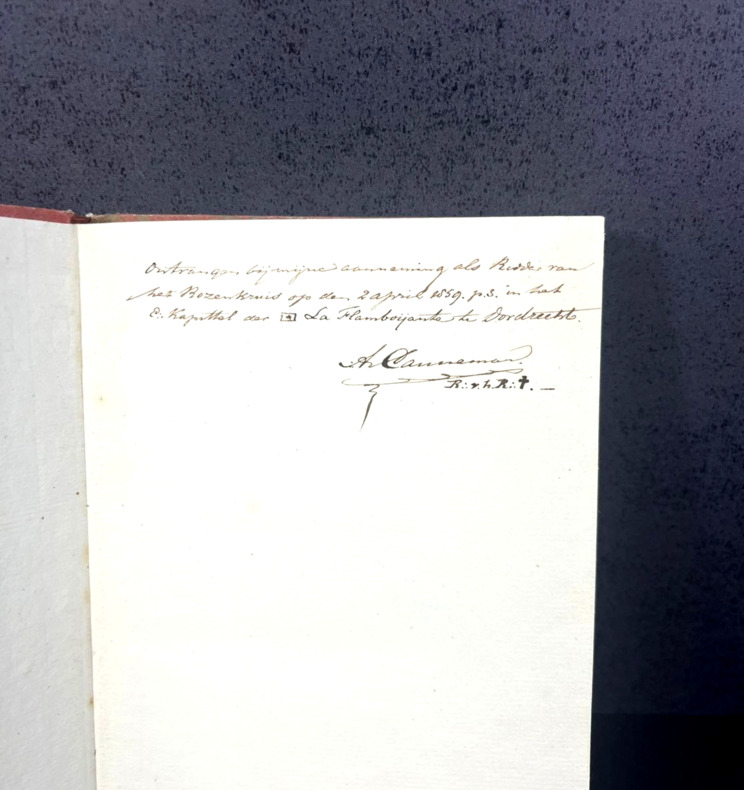 Ontvangen bij mijne aanneming als Ridder van
het Rozenkruis op den 2 april 1859. p.s. in het
C: Kapittel der La Flamboijante te Dordrecht.
A: Canneman.
R: v. h. R: ✝. —